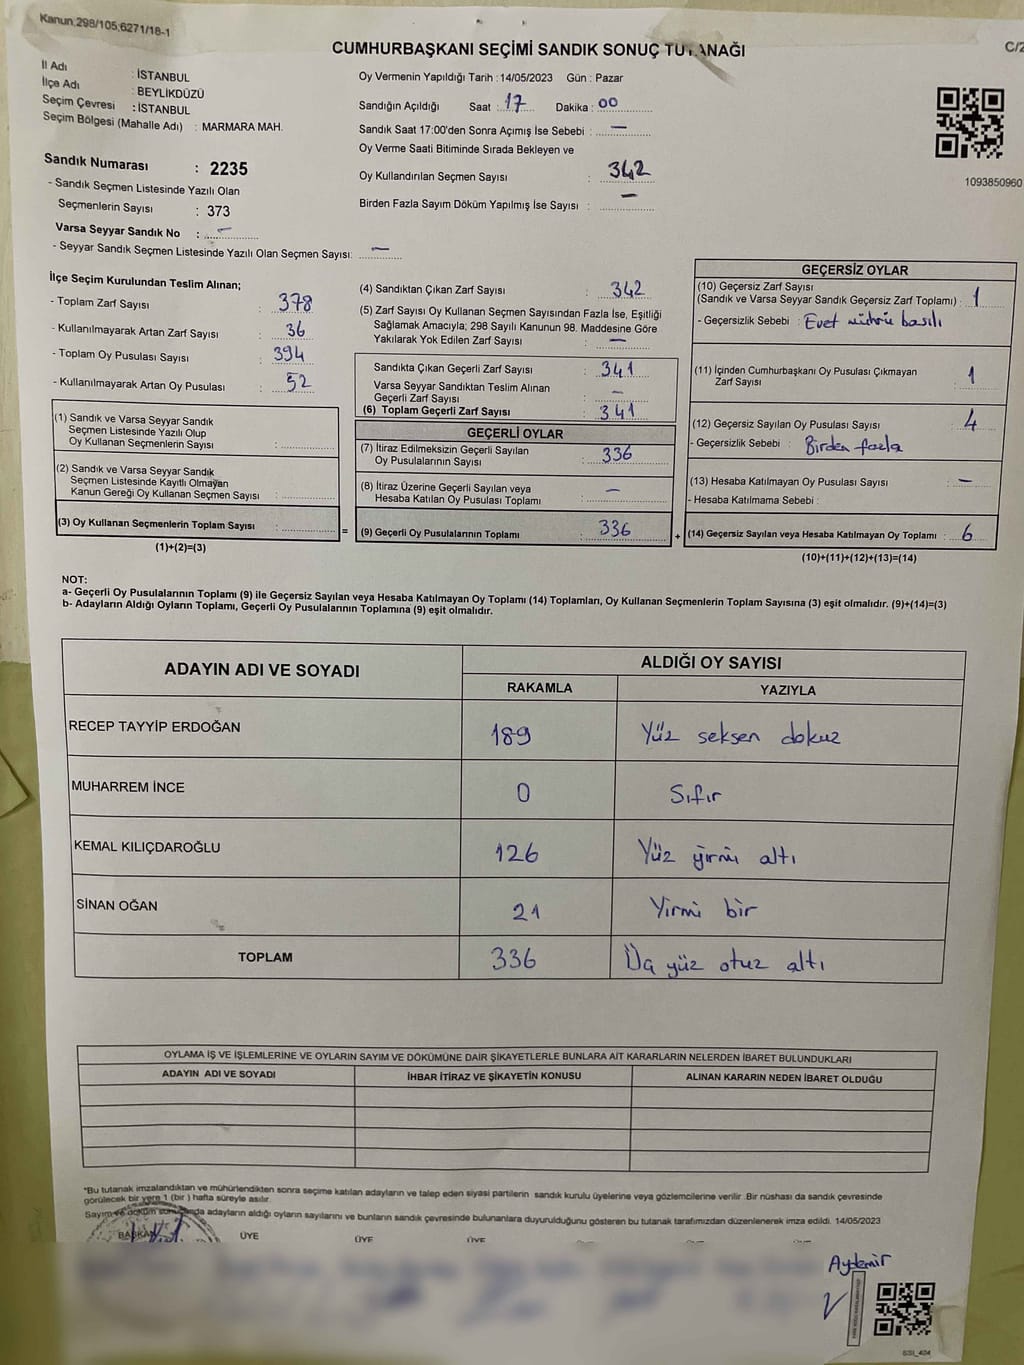 Kanun;298/105;6271/18-1
CUMHURBAŞKANI SEÇİMİ SANDIK SONUÇ TUTANAĞI
C/2
İl Adı : İSTANBUL
İlçe Adı : BEYLİKDÜZÜ
Seçim Çevresi : İSTANBUL
Seçim Bölgesi (Mahalle Adı) : MARMARA MAH.
Oy Vermenin Yapıldığı Tarih :14/05/2023 Gün : Pazar
Sandığın Açıldığı Saat : 17 Dakika : 00
Sandık Saat 17:00'den Sonra Açımış İse Sebebi : —
Oy Verme Saati Bitiminde Sırada Bekleyen ve
Oy Kullandırılan Seçmen Sayısı : 342
Birden Fazla Sayım Döküm Yapılmış İse Sayısı : —
1093850960
Sandık Numarası : 2235
- Sandık Seçmen Listesinde Yazılı Olan
Seçmenlerin Sayısı : 373
Varsa Seyyar Sandık No : —
- Seyyar Sandık Seçmen Listesinde Yazılı Olan Seçmen Sayısı: —
İlçe Seçim Kurulundan Teslim Alınan;
- Toplam Zarf Sayısı : 378
- Kullanılmayarak Artan Zarf Sayısı : 36
- Toplam Oy Pusulası Sayısı : 394
- Kullanılmayarak Artan Oy Pusulası : 52
(1) Sandık ve Varsa Seyyar Sandık
Seçmen Listesinde Yazılı Olup
Oy Kullanan Seçmenlerin Sayısı :
(2) Sandık ve Varsa Seyyar Sandık
Seçmen Listesinde Kayıtlı Olmayan
Kanun Gereği Oy Kullanan Seçmen Sayısı :
(3) Oy Kullanan Seçmenlerin Toplam Sayısı :
(1)+(2)=(3)
=
(4) Sandıktan Çıkan Zarf Sayısı : 342
(5) Zarf Sayısı Oy Kullanan Seçmen Sayısından Fazla İse, Eşitliği
Sağlamak Amacıyla; 298 Sayılı Kanunun 98. Maddesine Göre
Yakılarak Yok Edilen Zarf Sayısı : —
Sandıkta Çıkan Geçerli Zarf Sayısı : 341
Varsa Seyyar Sandıktan Teslim Alınan
Geçerli Zarf Sayısı : —
(6) Toplam Geçerli Zarf Sayısı : 341
GEÇERLİ OYLAR
(7) İtiraz Edilmeksizin Geçerli Sayılan
Oy Pusulalarının Sayısı : 336
(8) İtiraz Üzerine Geçerli Sayılan veya
Hesaba Katılan Oy Pusulası Toplamı : —
(9) Geçerli Oy Pusulalarının Toplamı : 336
+
GEÇERSİZ OYLAR
(10) Geçersiz Zarf Sayısı
(Sandık ve Varsa Seyyar Sandık Geçersiz Zarf Toplamı) : 1
- Geçersizlik Sebebi : Evet mührü basılı
(11) İçinden Cumhurbaşkanı Oy Pusulası Çıkmayan
Zarf Sayısı : 1
(12) Geçersiz Sayılan Oy Pusulası Sayısı : 4
- Geçersizlik Sebebi : Birden fazla
(13) Hesaba Katılmayan Oy Pusulası Sayısı : —
- Hesaba Katılmama Sebebi :
(14) Geçersiz Sayılan veya Hesaba Katılmayan Oy Toplamı : 6
(10)+(11)+(12)+(13)=(14)
NOT:
a- Geçerli Oy Pusulalarının Toplamı (9) ile Geçersiz Sayılan veya Hesaba Katılmayan Oy Toplamı (14) Toplamları, Oy Kullanan Seçmenlerin Toplam Sayısına (3) eşit olmalıdır. (9)+(14)=(3)
b- Adayların Aldığı Oyların Toplamı, Geçerli Oy Pusulalarının Toplamına (9) eşit olmalıdır.
ADAYIN ADI VE SOYADI ALDIĞI OY SAYISI
RAKAMLA YAZIYLA
RECEP TAYYİP ERDOĞAN 189 Yüz seksen dokuz
MUHARREM İNCE 0 Sıfır
KEMAL KILIÇDAROĞLU 126 Yüz yirmi altı
SİNAN OĞAN 21 Yirmi bir
TOPLAM 336 Üç yüz otuz altı
OYLAMA İŞ VE İŞLEMLERİNE VE OYLARIN SAYIM VE DÖKÜMÜNE DAİR ŞİKAYETLERLE BUNLARA AİT KARARLARIN NELERDEN İBARET BULUNDUKLARI
ADAYIN ADI VE SOYADI İHBAR İTİRAZ VE ŞİKAYETİN KONUSU ALINAN KARARIN NEDEN İBARET OLDUĞU
*Bu tutanak imzalandıktan ve mühürlendikten sonra seçime katılan adayların ve talep eden siyasi partilerin sandık kurulu üyelerine veya gözlemcilerine verilir .Bir nüshası da sandık çevresinde
görülecek bir yere 1 (bir ) hafta süreyle asılır.
Sayım ve döküm sonunda adayların aldığı oyların sayılarını ve bunların sandık çevresinde bulunanlara duyurulduğunu gösteren bu tutanak tarafımızdan düzenlenerek imza edildi. 14/05/2023
BAŞKAN ÜYE ÜYE ÜYE
Aydemir
SSI_404